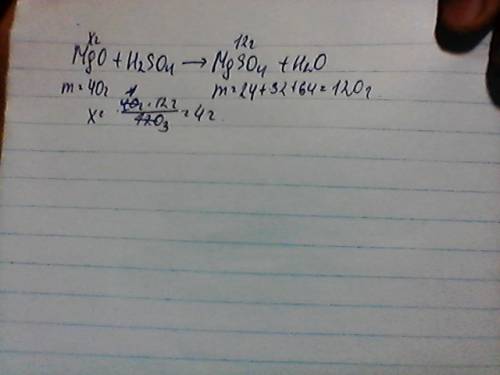 xг 12г
MgO + H₂SO₄ → MgSO₄ + H₂O
m = 40г m = 24+32+64 = 120г
x = 40г · 12г / 120 3 = 4г